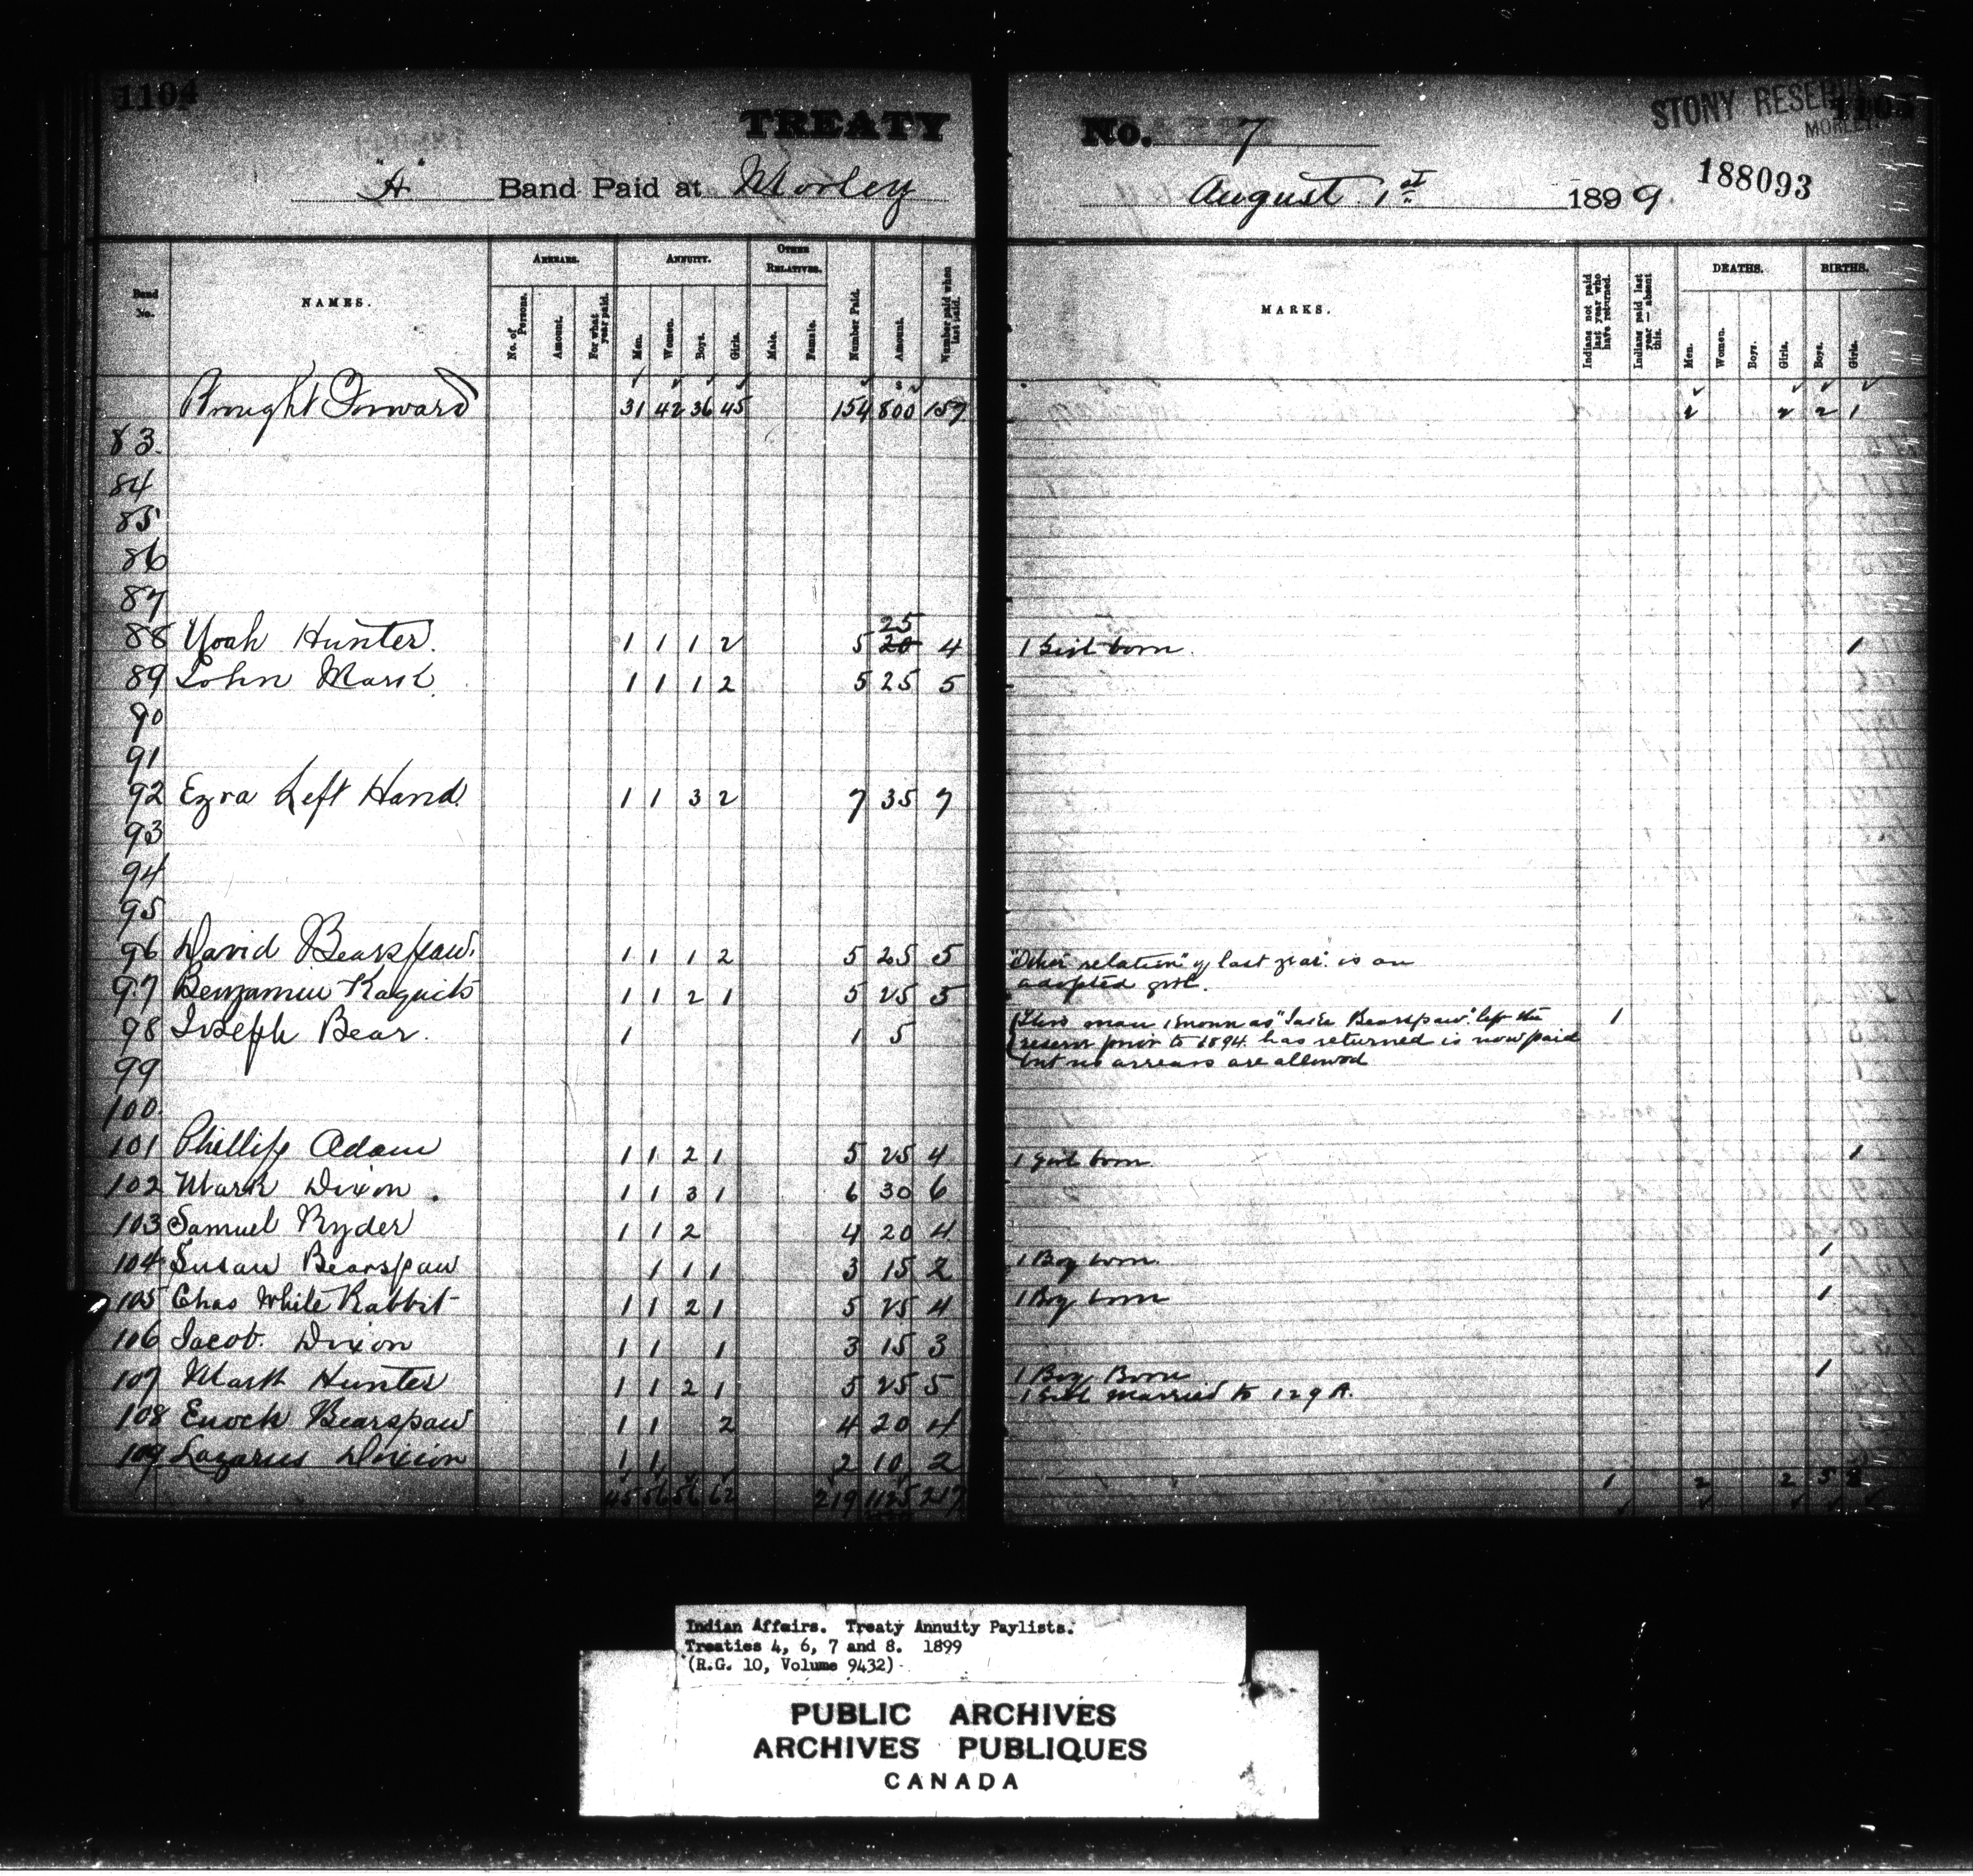 1104
TREATY No. 7
STONY RESERVE
MORLEY
1105
"A" Band Paid at Morley August 1st 1899.
188093
Band No.
NAMES.
ARREARS.
No. of Persons.
Amount.
For what year paid.
ANNUITY.
Men.
Women.
Boys.
Girls.
OTHER RELATIVES.
Male.
Female.
Number Paid.
Amount.
Number paid when last paid.
MARKS.
Indians not paid last year who have returned.
Indians paid last year — absent this.
DEATHS.
Men.
Women.
Boys.
Girls.
BIRTHS.
Boys.
Girls.
Brought Forward 31 42 36 45 154 800 157 2 2 2 1
83.
84
85
86
87
88 Noah Hunter. 1 1 1 2 5 20 25 4 1 Girl born. 1
89 John Mark 1 1 1 2 5 25 5
90
91
92 Ezra Left Hand. 1 1 3 2 7 35 7
93
94
95
96 David Bearspaw. 1 1 1 2 5 25 5 "Other relation" of last year is an
adopted girl.
97 Benjamin Kaquits 1 1 2 1 5 25 5
98 Joseph Bear. 1 1 5 This man known as "Jake Bearspaw" left the 1
reserve prior to 1894. has returned is now paid
but no arrears are allowed
99
100.
101 Phillip Adam 1 1 2 1 5 25 4 1 Girl born 1
102 Mark Dixon. 1 1 3 1 6 30 6
103 Samuel Ryder 1 1 2 4 20 4
104 Susan Bearspaw 1 1 1 3 15 2 1 Boy born. 1
105 Chas White Rabbit 1 1 2 1 5 25 4 1 Boy born 1
106 Jacob. Dixon 1 1 1 3 15 3
107 Mark Hunter 1 1 2 1 5 25 5 1 Boy Born 1
1 Girl married to 129 A.
108 Enoch Bearspaw 1 1 2 4 20 4
109 Lazarus Dixion 1 1 2 10 2
45 56 56 62 219 1125 217 1 2 2 5
Indian Affairs. Treaty Annuity Paylists.
Treaties 4, 6, 7 and 8. 1899
(R.G. 10, Volume 9432)
PUBLIC ARCHIVES
ARCHIVES PUBLIQUES
CANADA